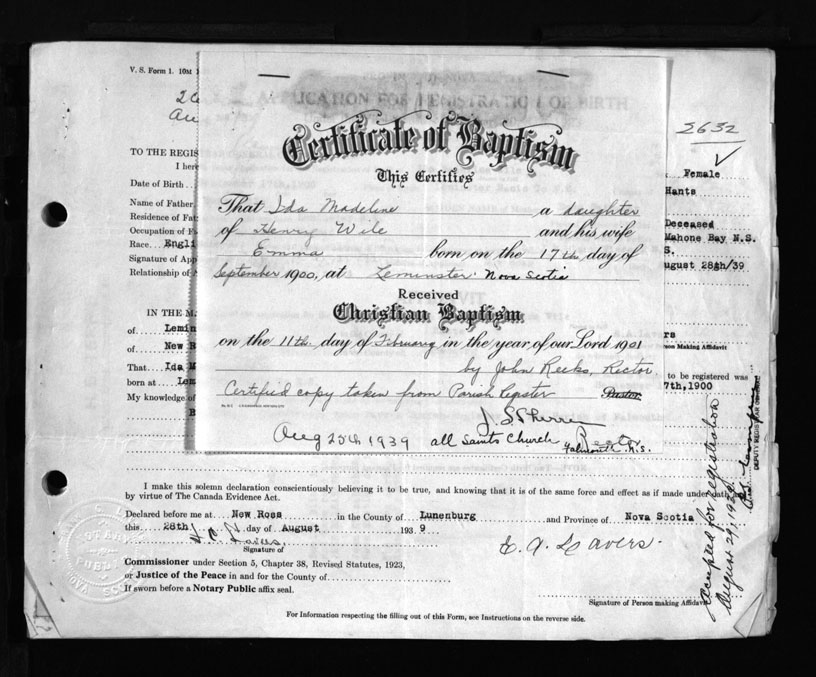 V. S. Form 1. 10M
APPLICATION FOR REGISTRATION OF BIRTH
2632
TO THE REGIS
I here
Date of Birth
Name of Father
Residence of Fat
Occupation of F
Race. Engli
Signature of App
Relationship of
Female
Hants
Deceased
Mahone Bay N.S.
S.
ugust 28th/39
Certificate of Baptism
This Certifies
That Ida Madeline a daughter
of Henry Wile and his wife
Emma born on the 17th day of
September 1900, at Leminster Nova Scotia
Received
Christian Baptism
on the 11th day of February in the year of our Lord 1901
by John Reeks, Rector
Certified copy taken from Parish Register Pastor
Aug 25th 1939 all Saints Church Rector
Falmouth N.S.
IN THE M
of Lemin
of New R
That Ida M
born at Lem
My knowledge of
rs
son Making Affidavit
to be registered was
7th, 1900
I make this solemn declaration conscientiously believing it to be true, and knowing that it is of the same force and effect as if made under oath and
by virtue of The Canada Evidence Act.
Declared before me at New Ross in the County of Lunenburg and Province of Nova Scotia
this 28th day of August 1939
E. A. Lavers.
Signature of
Commissioner under Section 5, Chapter 38, Revised Statutes, 1923,
or Justice of the Peace in and for the County of
If sworn before a Notary Public affix seal.
Signature of Person making Affidavit
For Information respecting the filling out of this Form, see Instructions on the reverse side.
Accepted for registration
August 29, 1939
DEPUTY REGISTRAR GENERAL